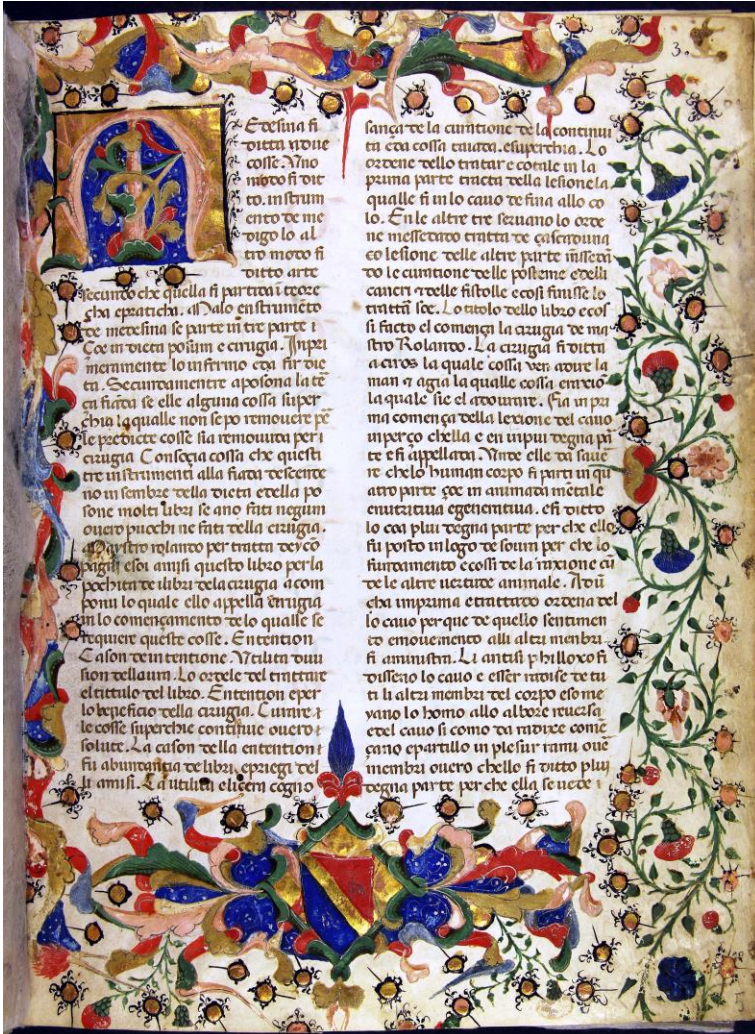 3.
M
Edesina si
ditta ī due
cosse. Uno
modo si dit
to. instrum
ento de me
digo lo al
tro modo si
ditto arte
secundo che quella si partida ī teore
cha e praticha. Malo en strumēto
de medesina se parte in tre parte ī
Çoe in dieta posum e cirugia. Inpri
meramente lo infermo eda fir die
ta. Secundamentre aposona la tē
ça fiada se elle alguna cossa super
chia la qualle non se po removere pē
le predicte cosse sia removuda per i
cirugia Consoçia cossa che questi
tre instrumenti alla fiada descende
no in sembre della dieta e della po
sone molti libri se ano fati negun
overo puochi ne fati della cirugia.
Maystro rolanto per tratta dey cō
pagni e soi amisi questo libro per la
pochita de libri de la cirugia a com
ponu lo quale ello appella cirugia
in lo començamento de lo qualle se
requiere queste cosse. Entention
Cason de intentione. Utilita divi
sion dellaum. Lo ordele del trattare
el tittulo del libro. Entention e per
lo beneficio della cirugia. Curare
le cosse superchie continue overo
solute. La cason della entention
fu abuntantia de libri, e priegi del
li amisi. La utilita e licem cogno
sança de la curatione de la continui
ta e da cossa taiada. e superchia. Lo
ordene dello tratar e cotale in la
prima parte tracta della lesione la
qualle si in lo cavo de fina allo co
lo. En le altre tre servano lo orde
ne messedado tratta de çascaduna
co lesione delle altre parte missedā
do le curatione delle posteme e delli
cancri e delle fistolle e cosi finisse lo
trattā soe. Lo titolo dello libro e cos
si facto el comença la cirugia de ma
stro Rolando. La cirugia si ditta
a ciros la quale cossa ven a dire la
man e agia la qualle cossa en vio
la quale sie el adovrare. Fia in pri
ma comença della lexione del cavo
inperço chella e en inpiu degna pā
te e si appellada. Unde elle da savē
re che lo human corpo si parti in qu
atro parte çoe in animada mētale
e nutritiva e generativa. e si ditto
lo coa plui degna parte per che ello
fu posto in logo de soura per che lo
fundamento e cossi de la raxione cū
de le altre vertude animale. Adū
cha imprima e trattado ordena del
lo cavo per que de quello sentimen
to e movimento alli altri menbri
si aministra. Li antisi philloxofi
disseno lo cavo e esser raidise de tu
ti li altri membri del corpo e so me
yano lo homo allo albore reversa
e del cavo si como da radixe comē
çano e partillo in plesiur rami ove
membri overo chello si ditto plui
degna parte per che ella se vede i